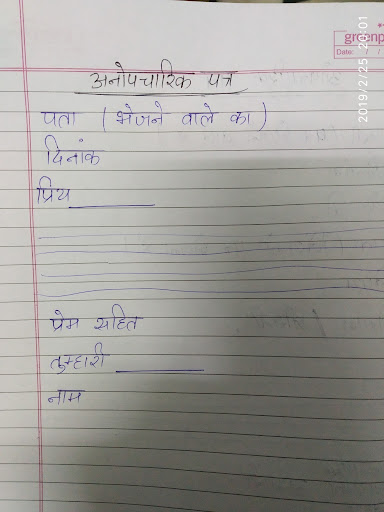 greenp
Date:
2019/2/25 20:01
अनोपचारिक पत्र
पता ( भेजने वाले का )
दिनांक
प्रिय
प्रेम सहित
तुम्हारी
नाम